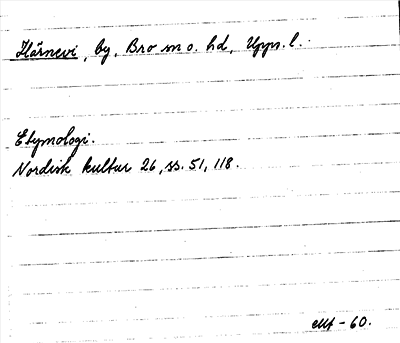 Härnevi, by, Bro sn o. hd, Uppl.
Etymologi.
Nordisk kultur 26, ss. 51, 118.
-60.